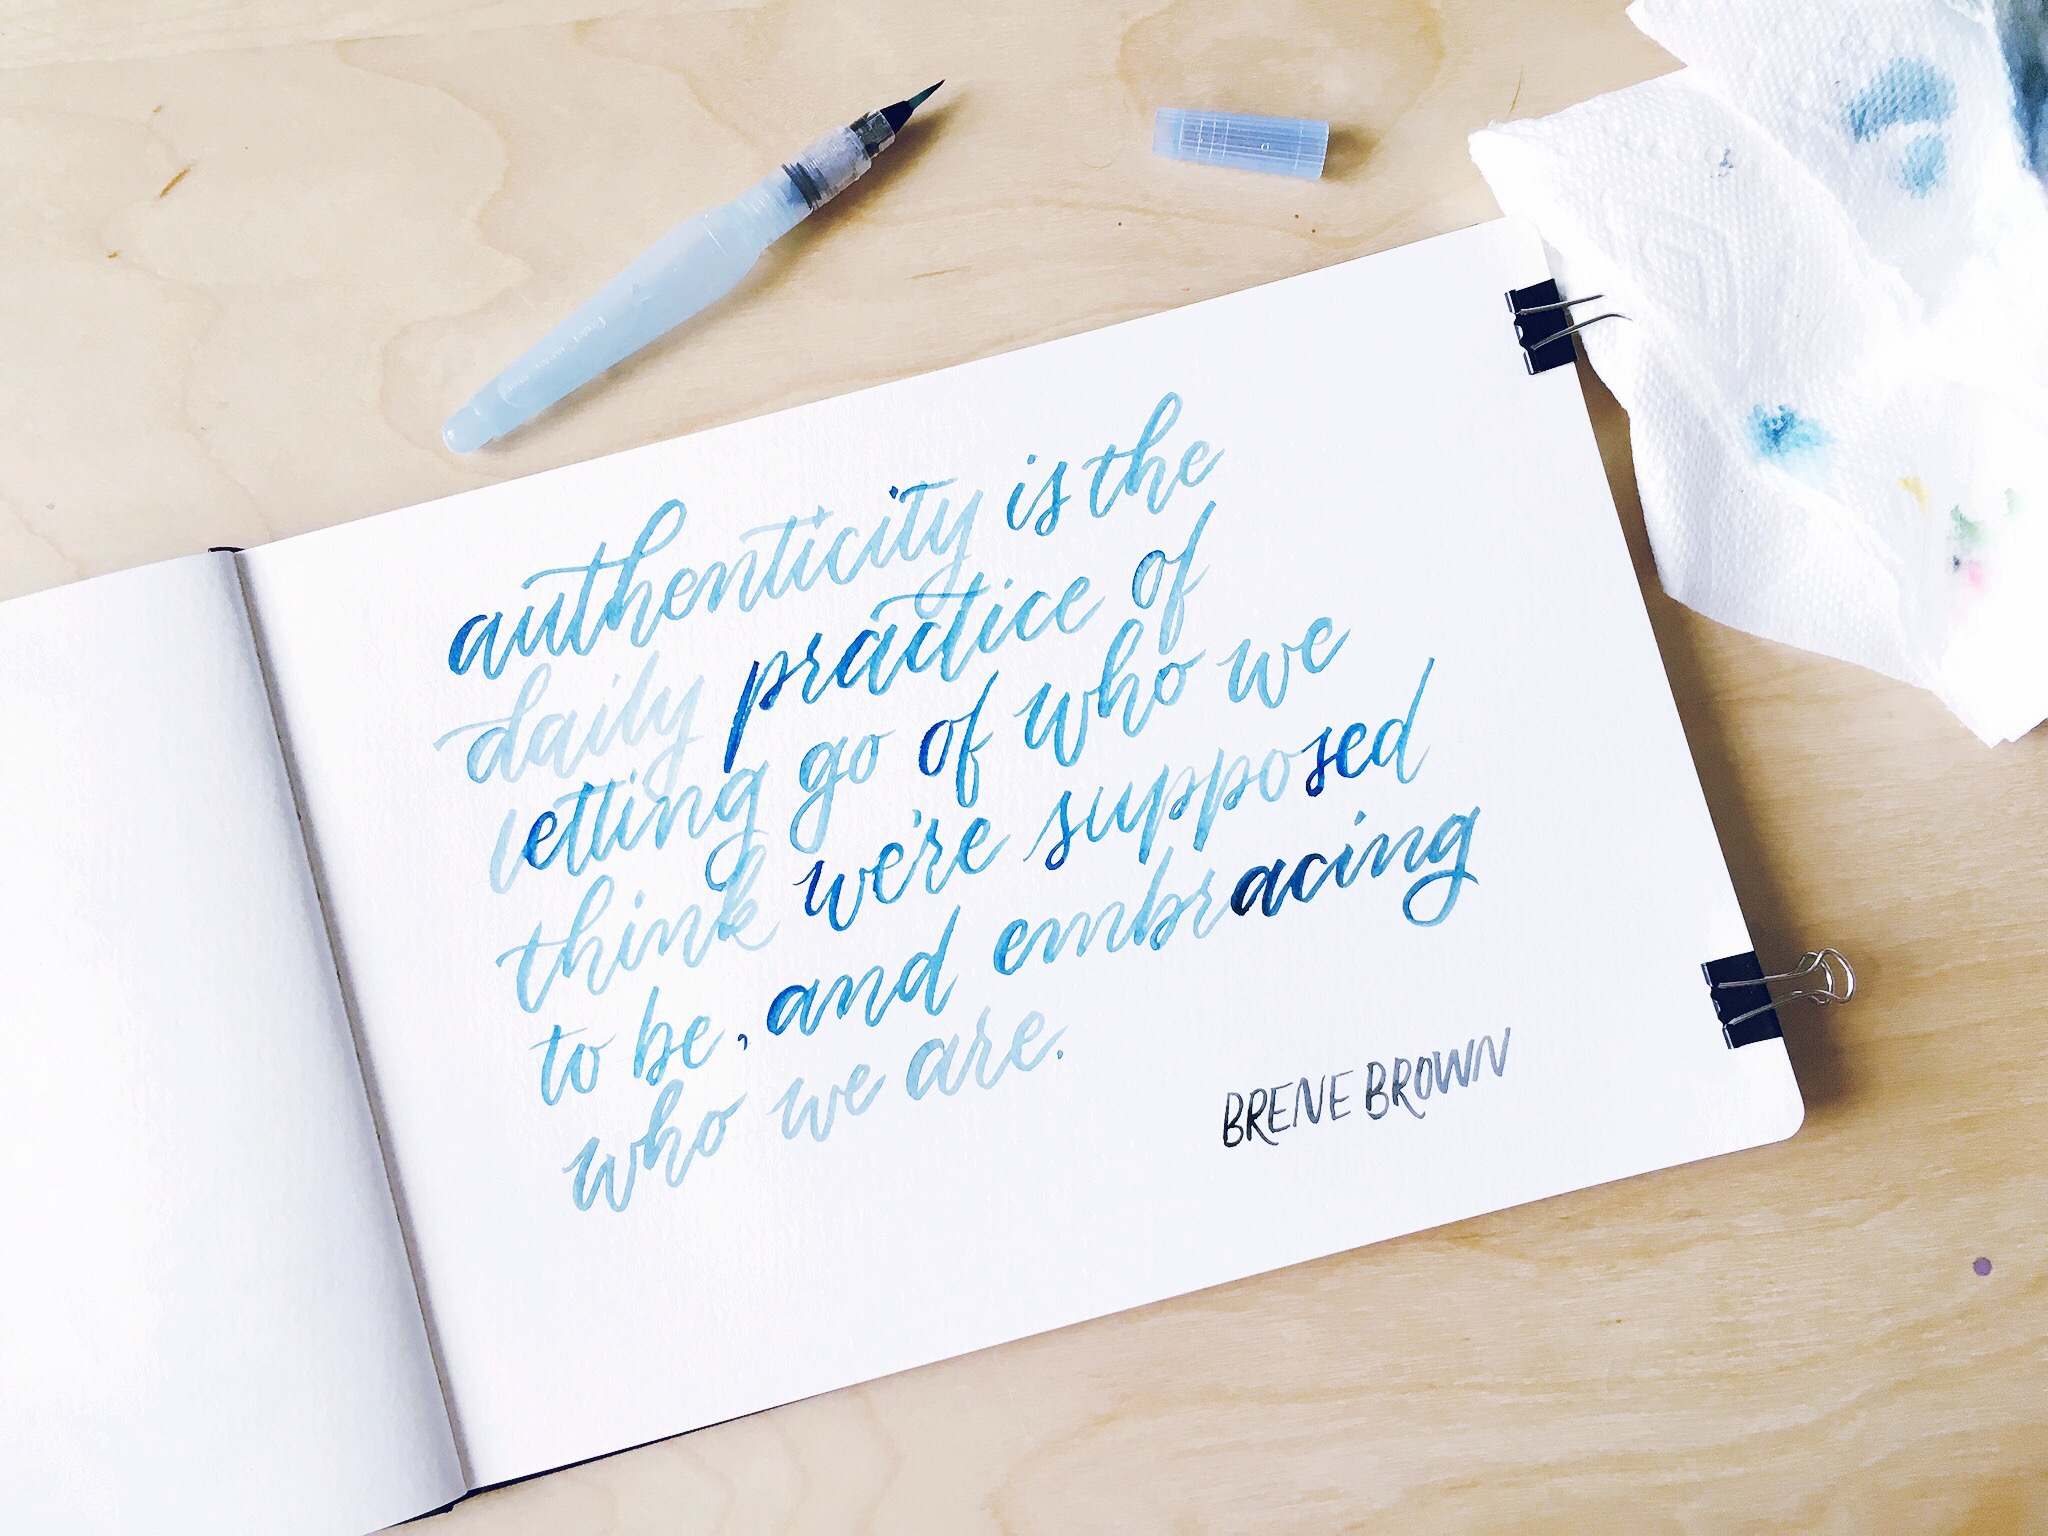 authenticity is the
daily practice of
letting go of who we
think we're supposed
to be, and embracing
who we are.
BRENE BROWN